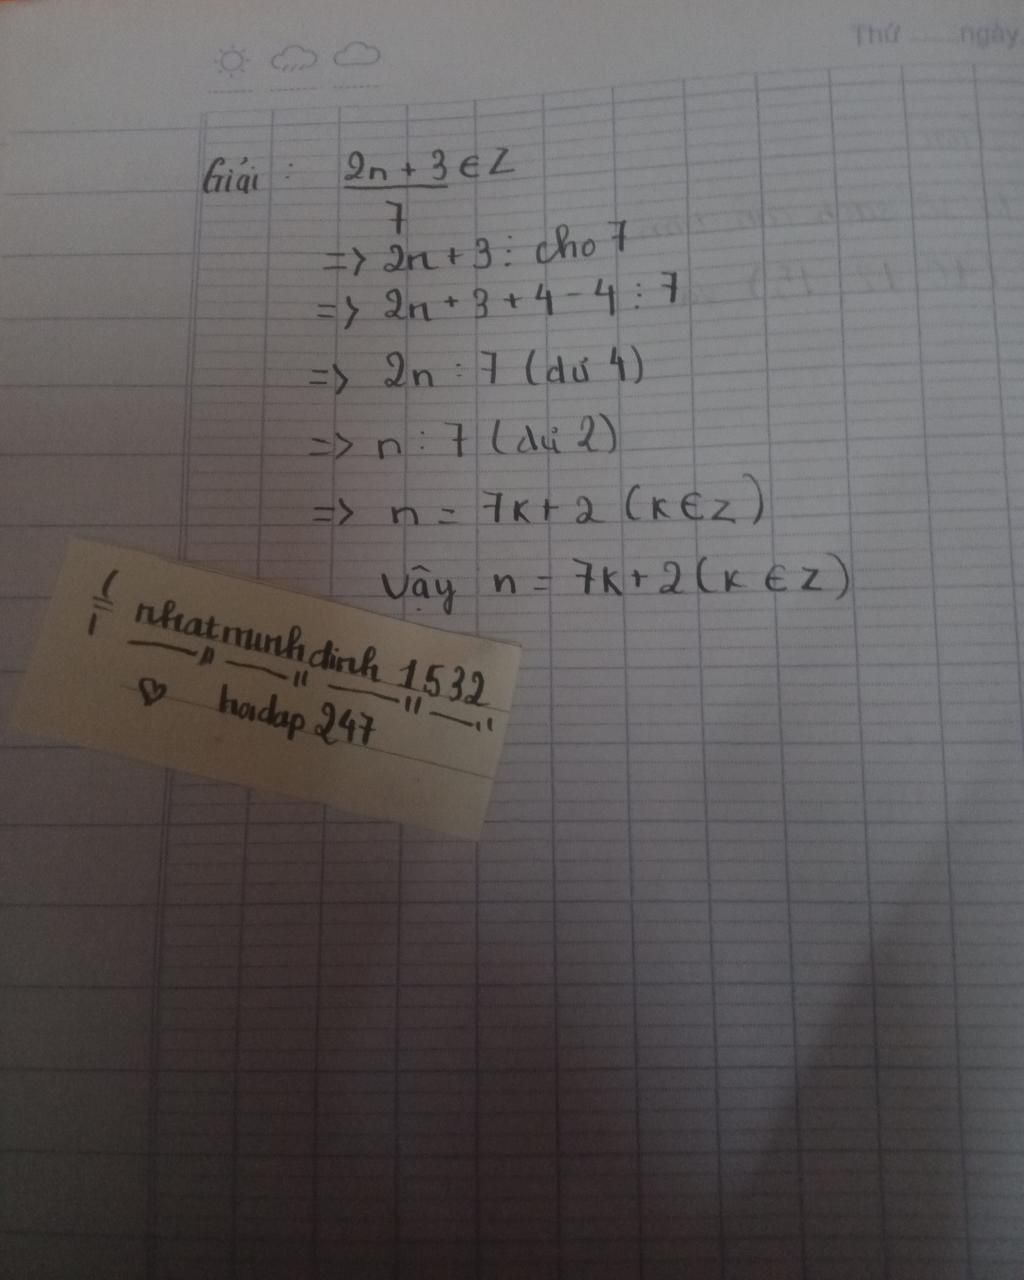 Thứ ngày
Giải : 2n + 3 ∈ Z
7
=> 2n + 3 ⋮ cho 7
=> 2n + 3 + 4 - 4 : 7
=> 2n : 7 (dư 4)
=> n : 7 (dư 2)
=> n = 7k + 2 (k ∈ Z)
Vậy n = 7k + 2 (k ∈ Z)
nhatminhdinh 1532
♡ hoidap 247